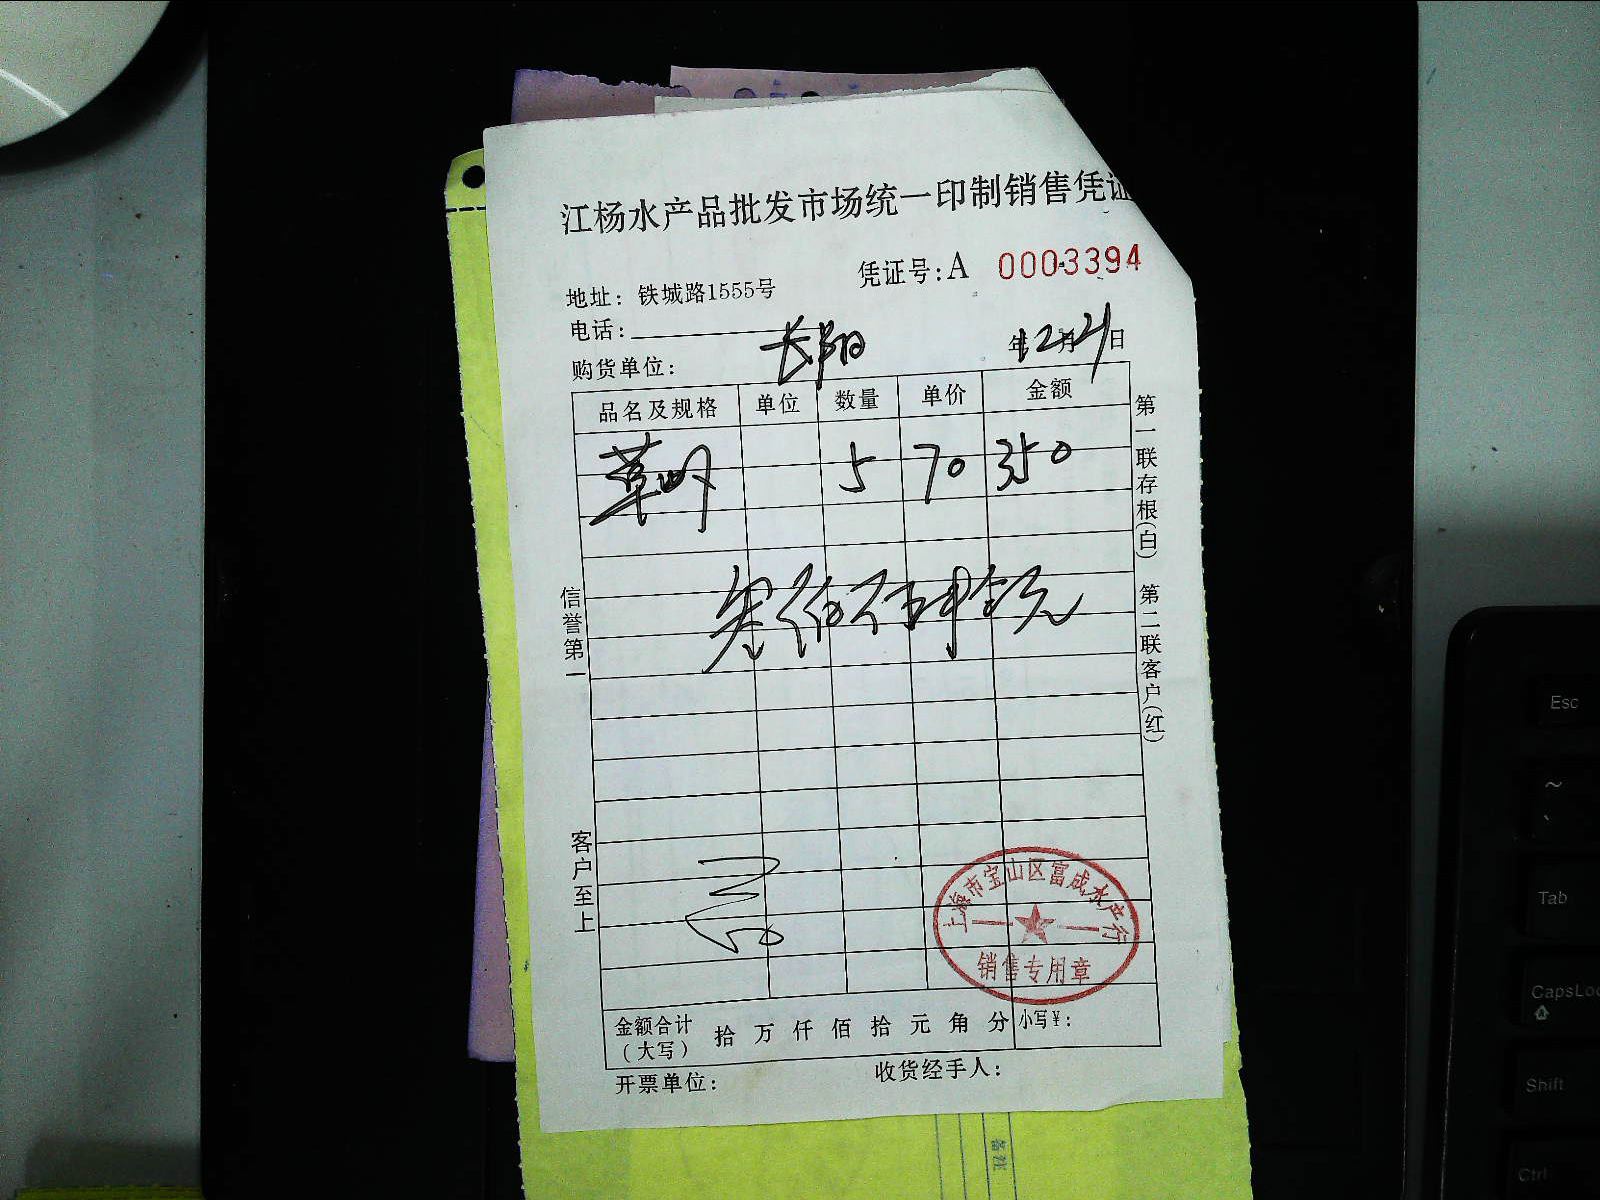 江杨水产品批发市场统一印制销售凭证
凭证号：A 0003394
地址：铁城路1555号
电话：
购货单位：长阳
年12月21日
品名及规格 单位 数量 单价 金额
草虾 5 70 350
叁佰伍拾元
信誉第一
客户至上
第一联存根(白) 第二联客户(红)
上海市宝山区富成水产行
销售专用章
金额合计（大写） 拾 万 仟 佰 拾 元 角 分 小写¥：
开票单位：
收货经手人：
备注
Esc
~
Tab
CapsLoc
Shift
Ctrl